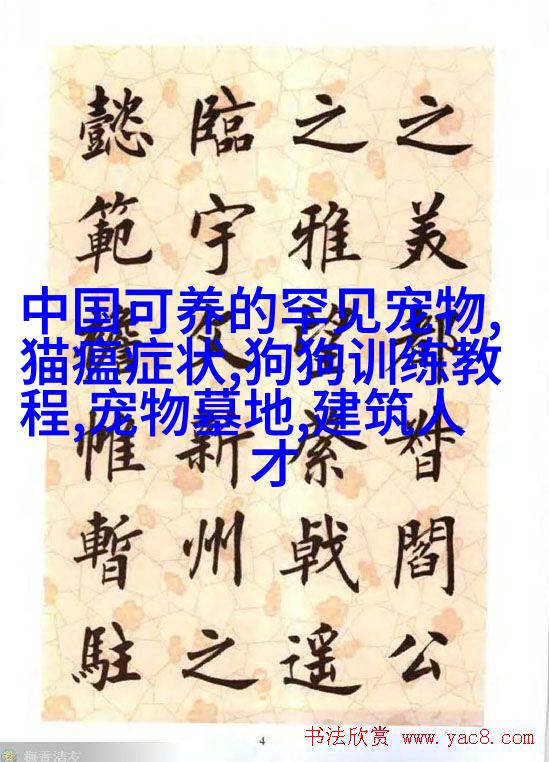 之美都督閻公
之雅望棨戟遥
臨宇文新州之
懿範襜帷暫駐
中国可养的罕见宠物,
猫瘟症状,狗狗训练教
程,宠物墓地,建筑人
才
4
书法欣赏 www.yac8.com